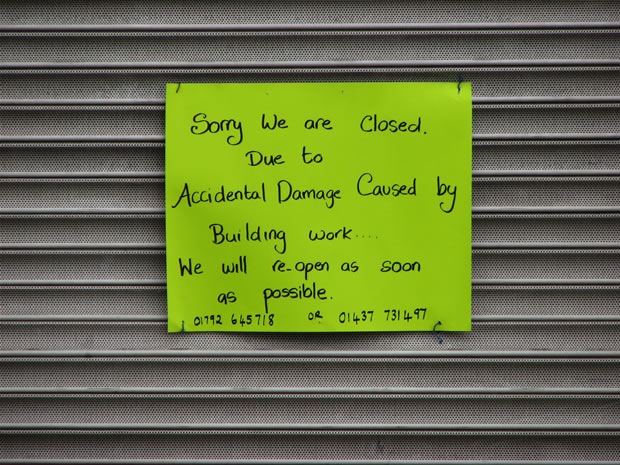 Sorry We are Closed.
Due to
Accidental Damage Caused by
Building work....
We will re-open as soon
as possible.
01792 645718 OR 01437 731497